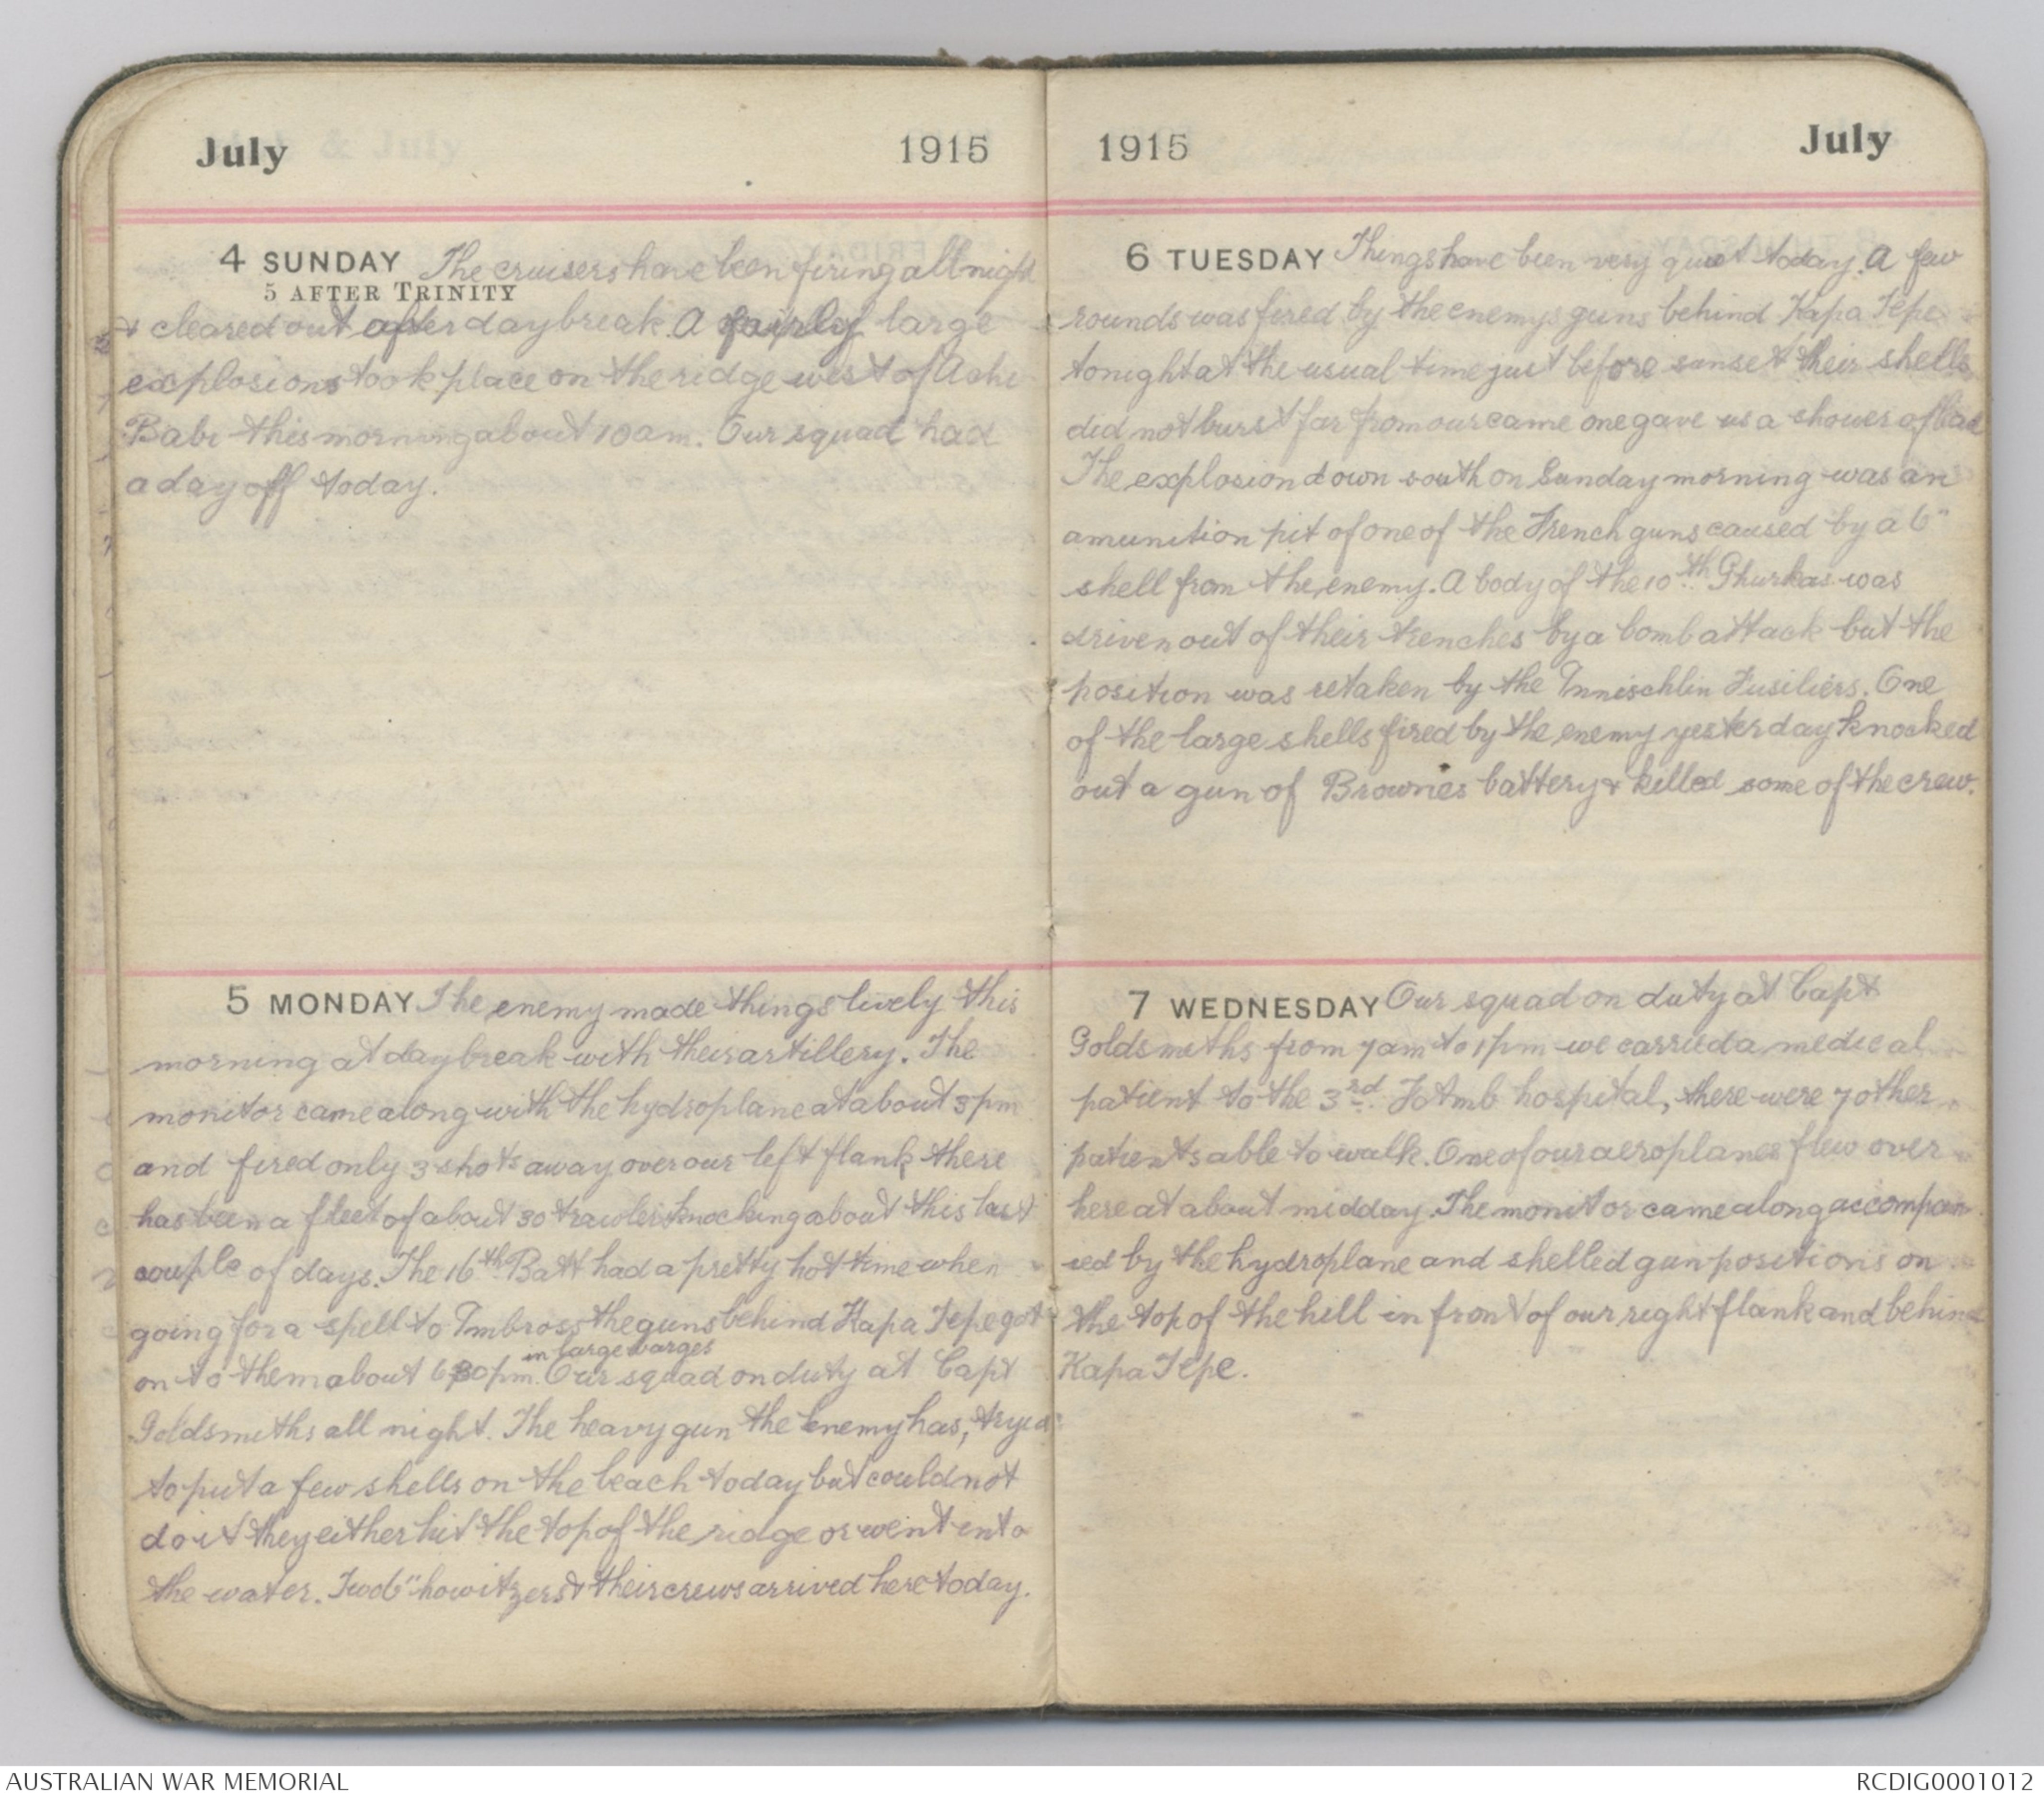 July 1915
4 SUNDAY The cruisers have been firing all night
5 AFTER TRINITY
& cleared out after daybreak. A fairly large
explosions took place on the ridge west of Achi
Babi this morning about 10 am. Our squad had
a day off today.
5 MONDAY The enemy made things lively this
morning at daybreak with their artillery. The
monitor came along with the hydroplane at about 3 pm
and fired only 3 shots away over our left flank there
has been a fleet of about 30 trawlers knocking about this last
couple of days. The 16th Batt had a pretty hot time when
going for a spell to Imbross the guns behind Kapa Tepe got
in large barges
on to them about 630 pm. Our squad on duty at Capt
Goldsmiths all night. The heavy gun the enemy has, tryed
to put a few shells on the beach today but could not
do it they either hit the top of the ridge or went into
the water. Two 6" howitzers & their crews arrived here today.
1915 July
6 TUESDAY Things have been very quiet today. A few
rounds was fired by the enemys guns behind Kapa Tepe
tonight at the usual time just before sunset their shells
did not burst far from our came one gave us a shower of
The explosion down south on Sunday morning was an
amunition pit of one of the French guns caused by a 6"
shell from the enemy. A body of the 10th Ghurkas was
driven out of their trenches by a bomb attack but the
position was retaken by the Innischlin Fusiliers. One
of the large shells fired by the enemy yesterday knocked
out a gun of Brownes battery & killed some of the crew.
7 WEDNESDAY Our squad on duty at Capt
Goldsmiths from 7am to 1pm we carried a medical
patient to the 3rd. Fd Amb hospital, there were 7 other
patients able to walk. One of our aeroplanes flew over
here at about midday. The monitor came along accompan
ied by the hydroplane and shelled gun positions on
the top of the hill in front of our right flank and behind
Kapa Tepe.
AUSTRALIAN WAR MEMORIAL
RCDIG0001012